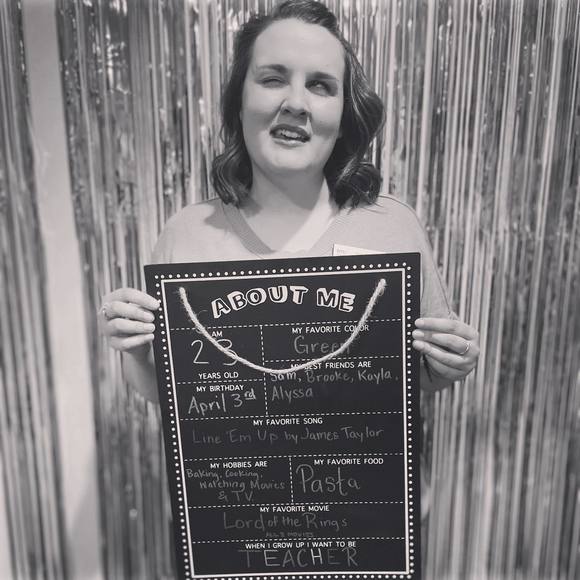 ABOUT ME
I AM
23
YEARS OLD
MY FAVORITE COLOR
Green
MY BIRTHDAY
April 3rd
MY BEST FRIENDS ARE
Sam, Brooke, Kayla,
Alyssa
MY FAVORITE SONG
Line 'Em Up by James Taylor
MY HOBBIES ARE
Baking, Cooking,
Watching Movies
& TV
MY FAVORITE FOOD
Pasta
MY FAVORITE MOVIE
Lord of the Rings
ALL 3 MOVIES
WHEN I GROW UP I WANT TO BE
TEACHER